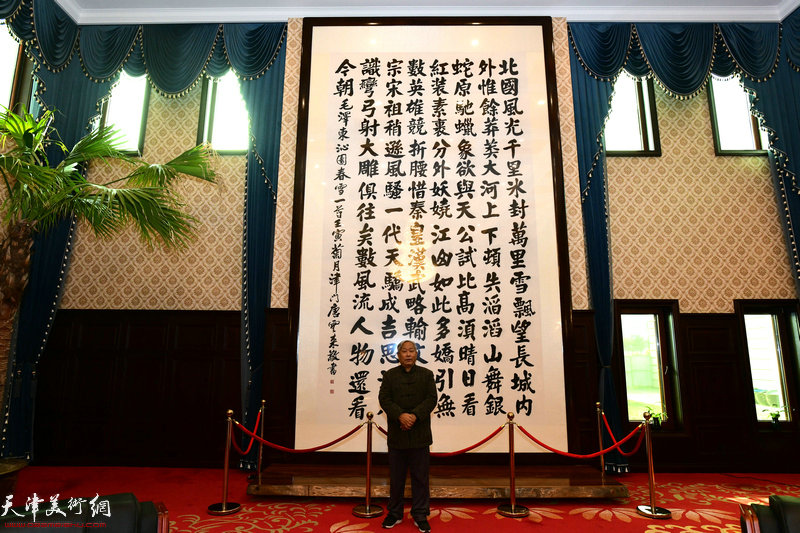 北國風光千里冰封萬里雪飄望長城內
外惟餘莽莽大河上下頓失滔滔山舞銀
蛇原馳蠟象欲與天公試比高須晴日看
紅裝素裹分外妖嬈江山如此多嬌引無
數英雄競折腰惜秦皇漢武略輸文
宗宋祖稍遜風騷一代天驕成吉思
識彎弓射大雕俱往矣數風流人物還看
今朝 毛澤東沁園春雪一首壬寅菊月津門唐雲來敬書
天津美術網